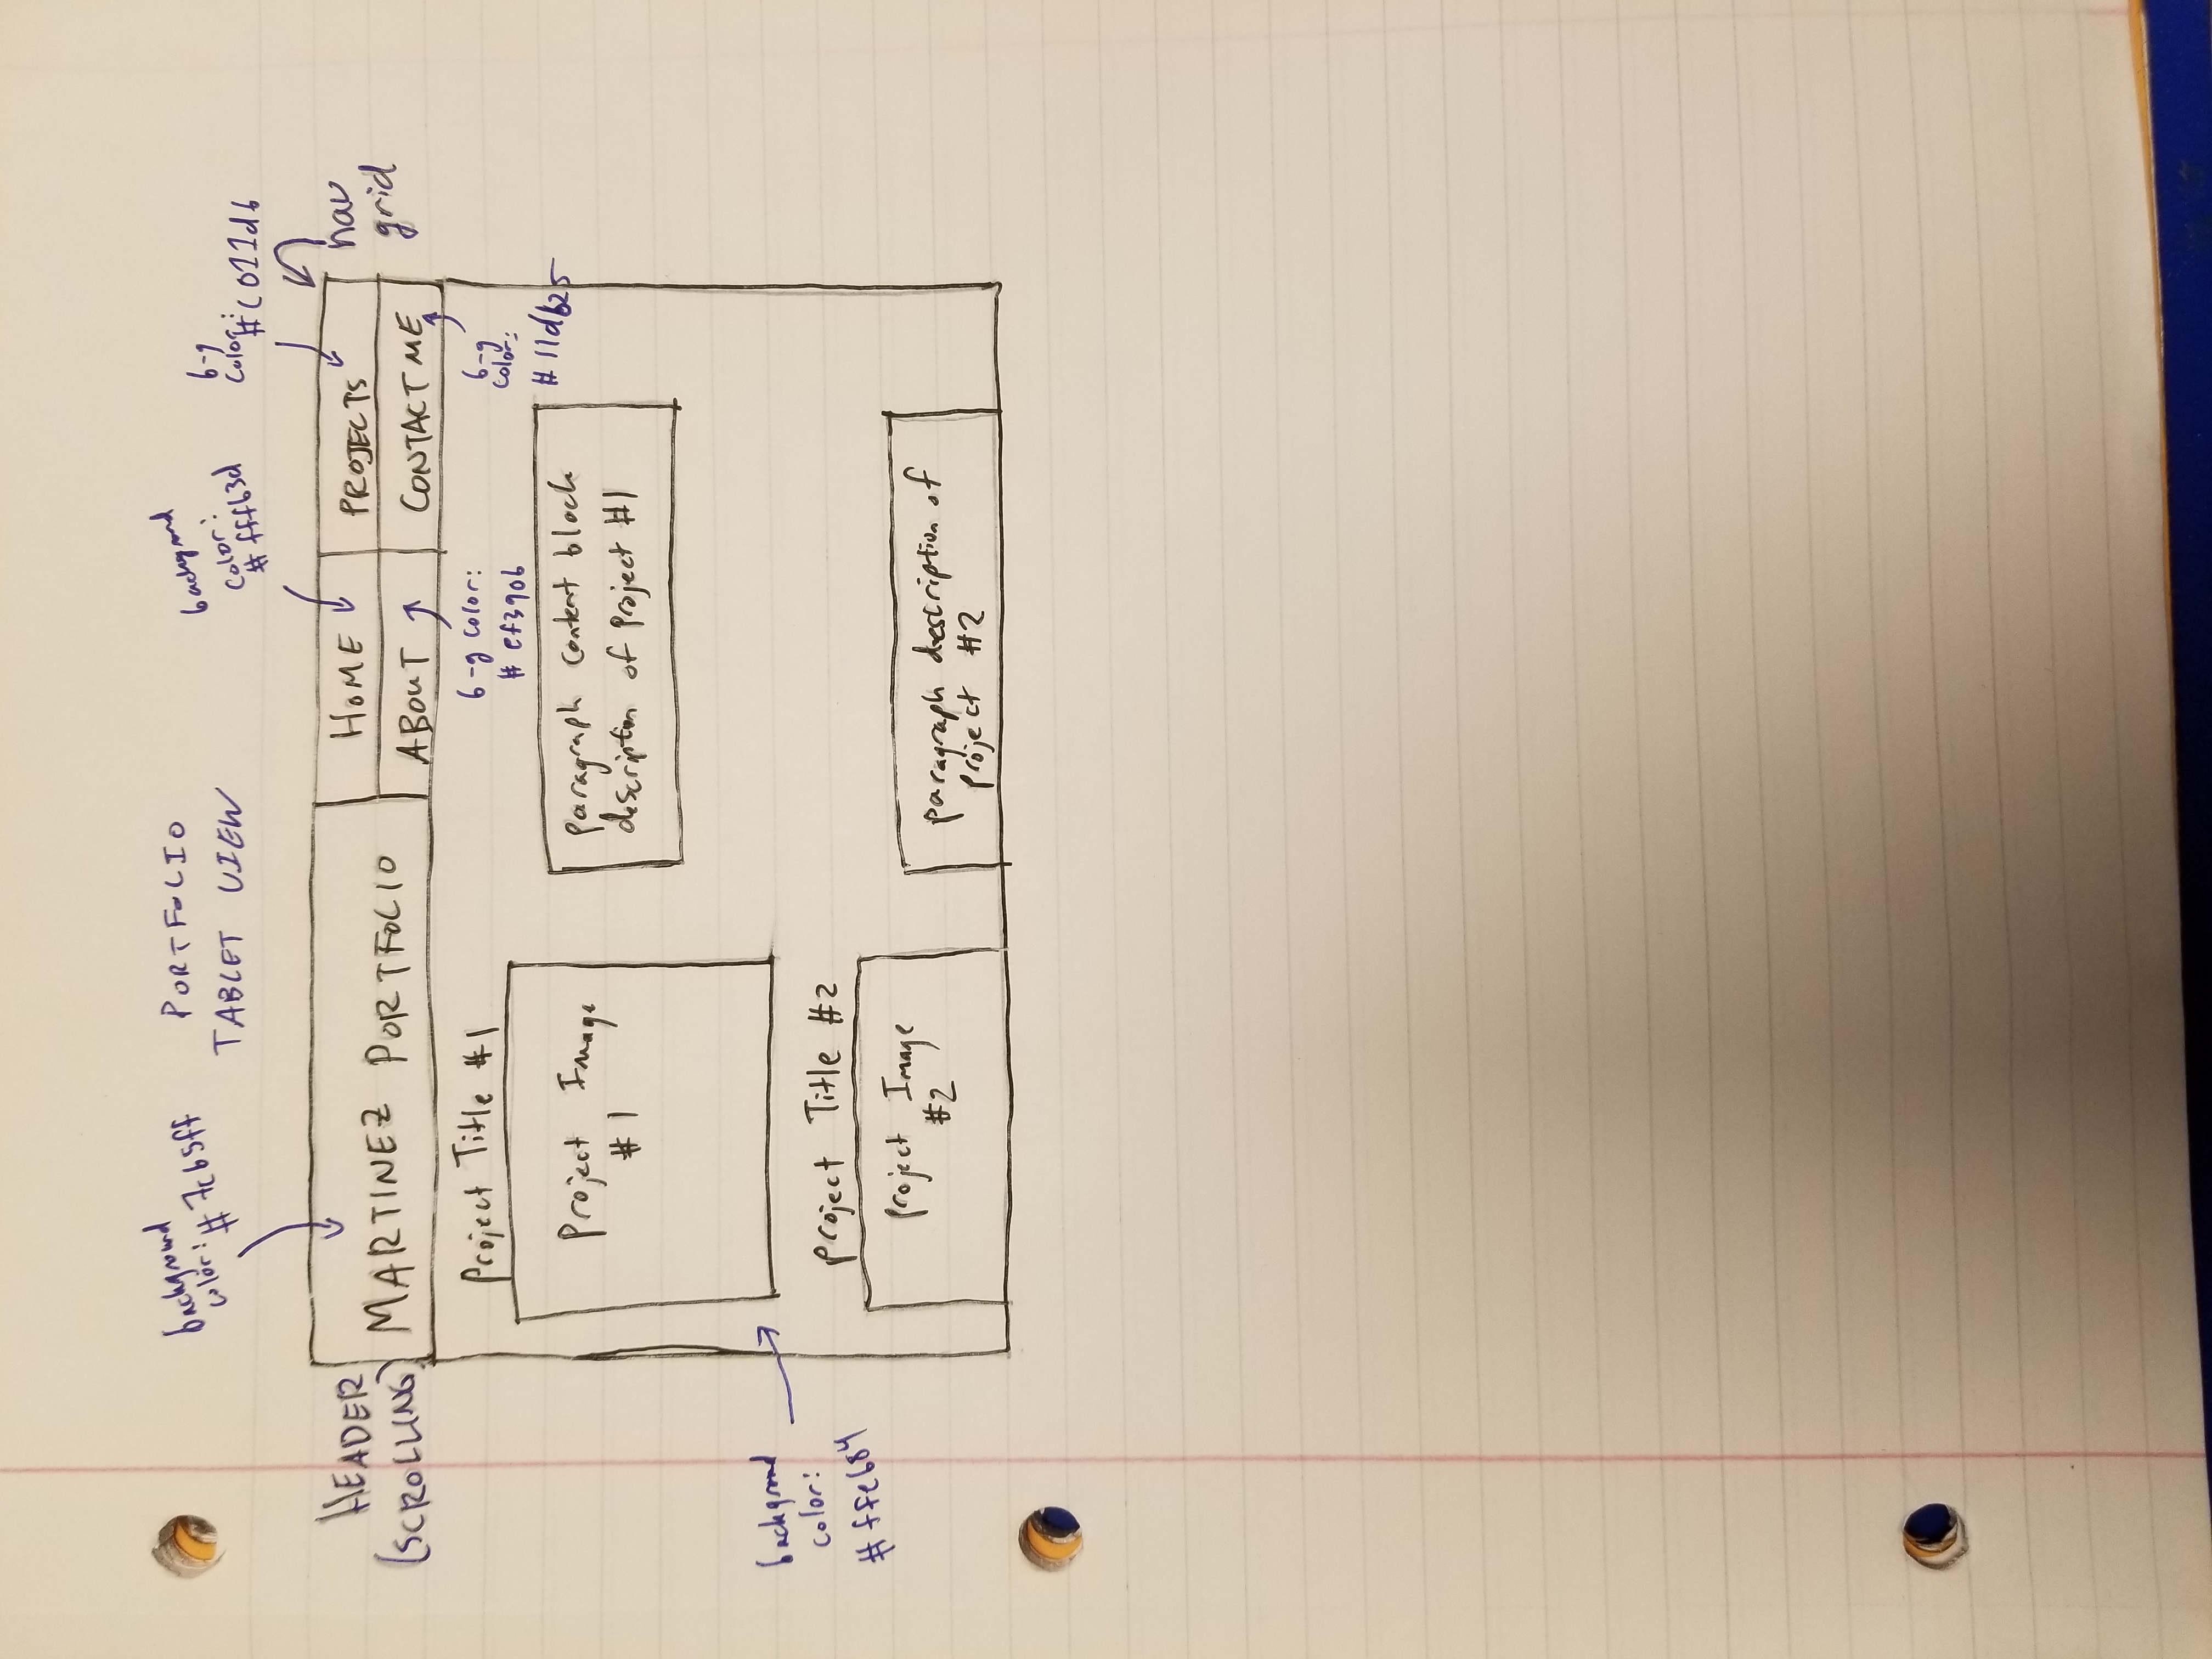 PORTFOLIO
TABLET VIEW
background
color: #7cb5ff
background
color:
#fffb3d
b-g
color:
#c011db
nav
grid
HEADER
(SCROLLING)
MARTINEZ PORTFOLIO
HOME
PROJECTS
ABOUT
CONTACT ME
b-g color:
#ef390b
b-g
color:
#11db25
Project Title #1
Project Image
#1
paragraph content block
description of Project #1
background
color:
#ffeb84
Project Title #2
Project Image
#2
paragraph description of
project #2